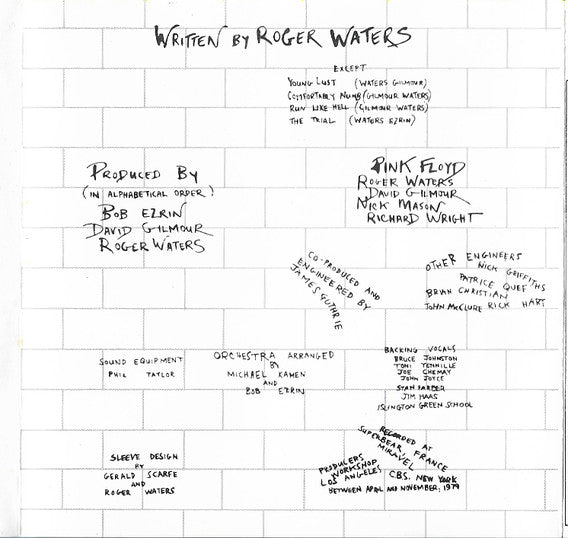 WRITTEN BY ROGER WATERS
EXCEPT
YOUNG LUST (WATERS GILMOUR)
COMFORTABLY NUMB (GILMOUR WATERS)
RUN LIKE HELL (GILMOUR WATERS)
THE TRIAL (WATERS EZRIN)
PRODUCED BY
(IN ALPHABETICAL ORDER!)
BOB EZRIN
DAVID GILMOUR
ROGER WATERS
PINK FLOYD
ROGER WATERS
DAVID GILMOUR
NICK MASON
RICHARD WRIGHT
CO-PRODUCED AND
ENGINEERED BY
JAMES GUTHRIE
OTHER ENGINEERS
NICK GRIFFITHS
PATRICE QUEF
BRIAN CHRISTIAN
JOHN McCLURE RICK HART
SOUND EQUIPMENT
PHIL TAYLOR
ORCHESTRA ARRANGED
BY
MICHAEL KAMEN
AND
BOB EZRIN
BACKING VOCALS
BRUCE JOHNSTON
TONI TENNILLE
JOE CHEMAY
JOHN JOYCE
STAN FARBER
JIM HAAS
ISLINGTON GREEN SCHOOL
SLEEVE DESIGN
BY
GERALD SCARFE
AND
ROGER WATERS
RECORDED AT
SUPERBEAR, FRANCE
MIRAVEL
PRODUCERS
WORKSHOP
LOS ANGELES
C.B.S. NEW YORK
BETWEEN APRIL AND NOVEMBER, 1979